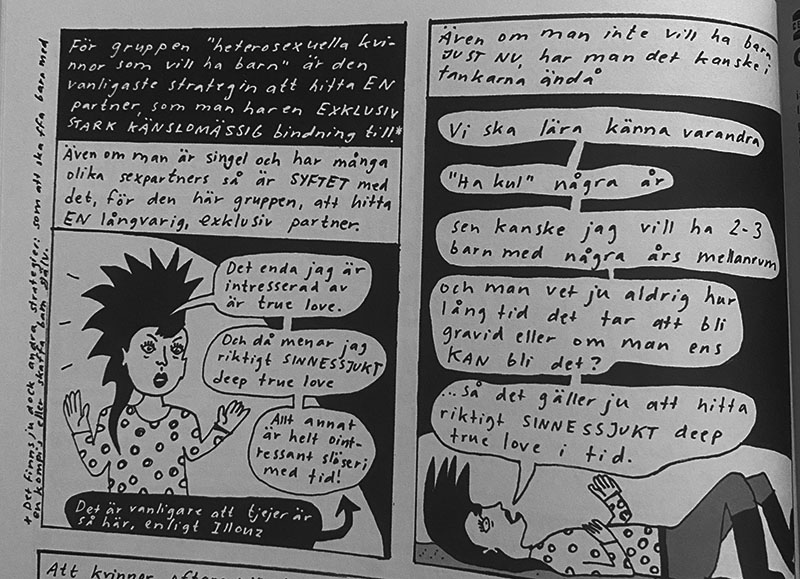 För gruppen "heterosexuella kvi-
nnor som vill ha barn" är den
vanligaste strategin att hitta EN
partner, som man har en EXKLUSIV
STARK KÄNSLOMÄSSIG bindning till!*
Även om man är singel och har många
olika sexpartners så är SYFTET med
det, för den här gruppen, att hitta
EN långvarig, exklusiv partner.
Det enda jag är
intresserad av
är true love.
Och då menar jag
riktigt SINNESSJUKT
deep true love
Allt annat
är helt oint-
ressant slöseri
med tid!
Det är vanligare att tjejer är
så här, enligt Illouz
* Det finns ju dock andra strategier: som att skaffa barn med
en kompis eller skaffa barn själv.
Även om man inte vill ha barn
JUST NU, har man det kanske i
tankarna ändå
Vi ska lära känna varandra
"Ha kul" några år
sen kanske jag vill ha 2-3
barn med några års mellanrum
och man vet ju aldrig hur
lång tid det tar att bli
gravid eller om man ens
KAN bli det?
...så det gäller ju att hitta
riktigt SINNESSJUKT deep
true love i tid.
Att kvinnor